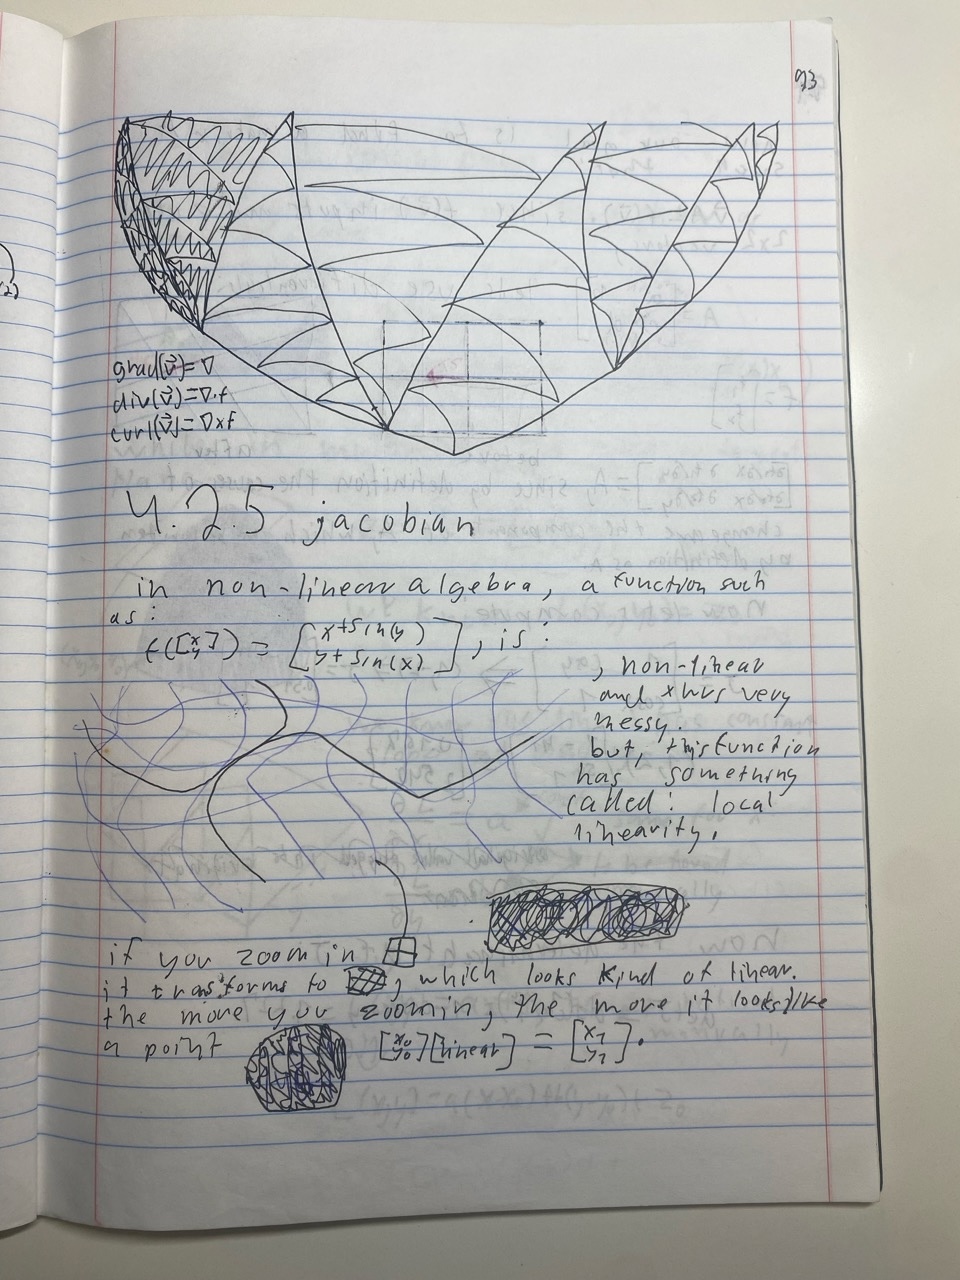 93
grad(v⃗)=∇
div(v⃗)=∇·f
curl(v⃗)=∇xf
4.2.5 jacobian
in non-linear algebra, a function such
as:
f([x y])=[x+sin(y) y+sin(x)], is:
, non-linear
and very
messy.
but, this function
has something
called: local
linearity.
if you zoom in
it transforms to , which looks kind of linear.
the more you zoom in, the more it looks like
a point
[x₀ y₀][linear] = [x₁ y₁].